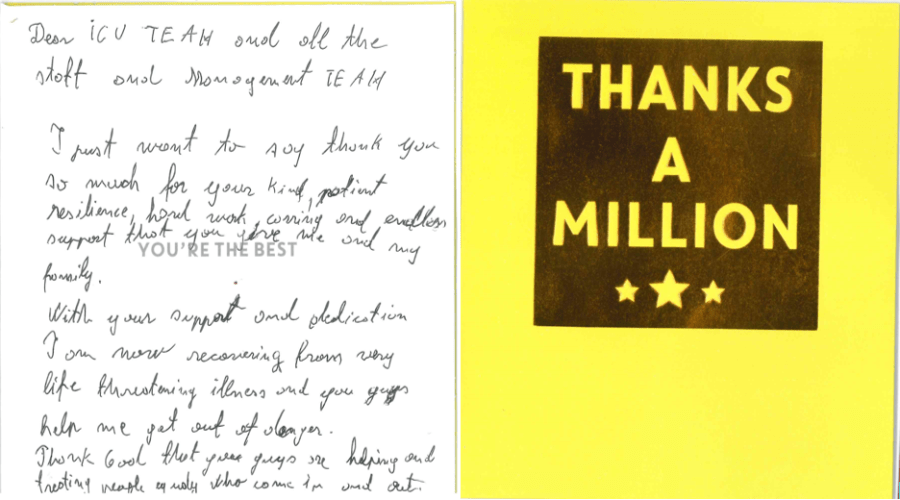 Dear ICU TEAM and all the
staff and Management TEAM
I just want to say thank you
so much for your kind, patient
resilience, hard work, carring and endless
support that you give me and my
YOU'RE THE BEST
family.
With your support and dedication
I am now recovering from very
life threatening illness and you guys
help me get out of danger.
Thank God that guys are helping and
treating people equaly who come in and out.
THANKS
A
MILLION